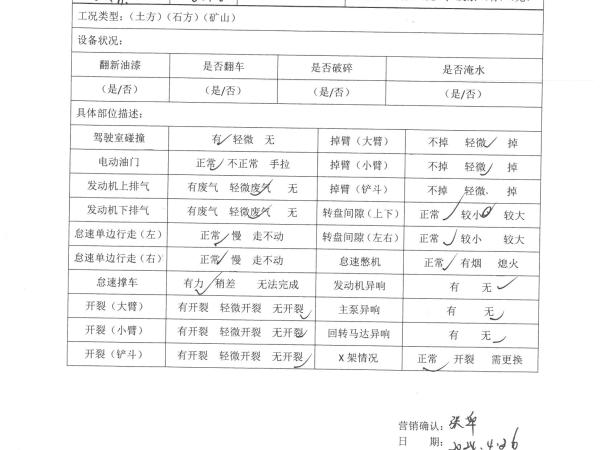 工况类型：（土方）（石方）（矿山）
设备状况：
翻新油漆 是否翻车 是否破碎 是否淹水
（是/否） （是/否） （是/否） （是/否）
具体部位描述：
驾驶室碰撞 有✓ 轻微 无 掉臂（大臂） 不掉 轻微✓ 掉
电动油门 正常✓ 不正常 手拉 掉臂（小臂） 不掉 轻微✓ 掉
发动机上排气 有废气 轻微废气✓ 无 掉臂（铲斗） 不掉 轻微✓ 掉
发动机下排气 有废气 轻微废气✓ 无 转盘间隙（上下） 正常✓ 较小 较大
怠速单边行走（左） 正常✓ 慢 走不动 转盘间隙（左右） 正常✓ 较小 较大
怠速单边行走（右） 正常✓ 慢 走不动 怠速憋机 正常✓ 有烟 熄火
怠速撑车 有力✓ 稍差 无法完成 发动机异响 有 无✓
开裂（大臂） 有开裂 轻微开裂 无开裂✓ 主泵异响 有 无✓
开裂（小臂） 有开裂 轻微开裂 无开裂✓ 回转马达异响 有 无✓
开裂（铲斗） 有开裂 轻微开裂 无开裂✓ X架情况 正常✓ 开裂 需更换
营销确认：张
日 期：2024.4.26